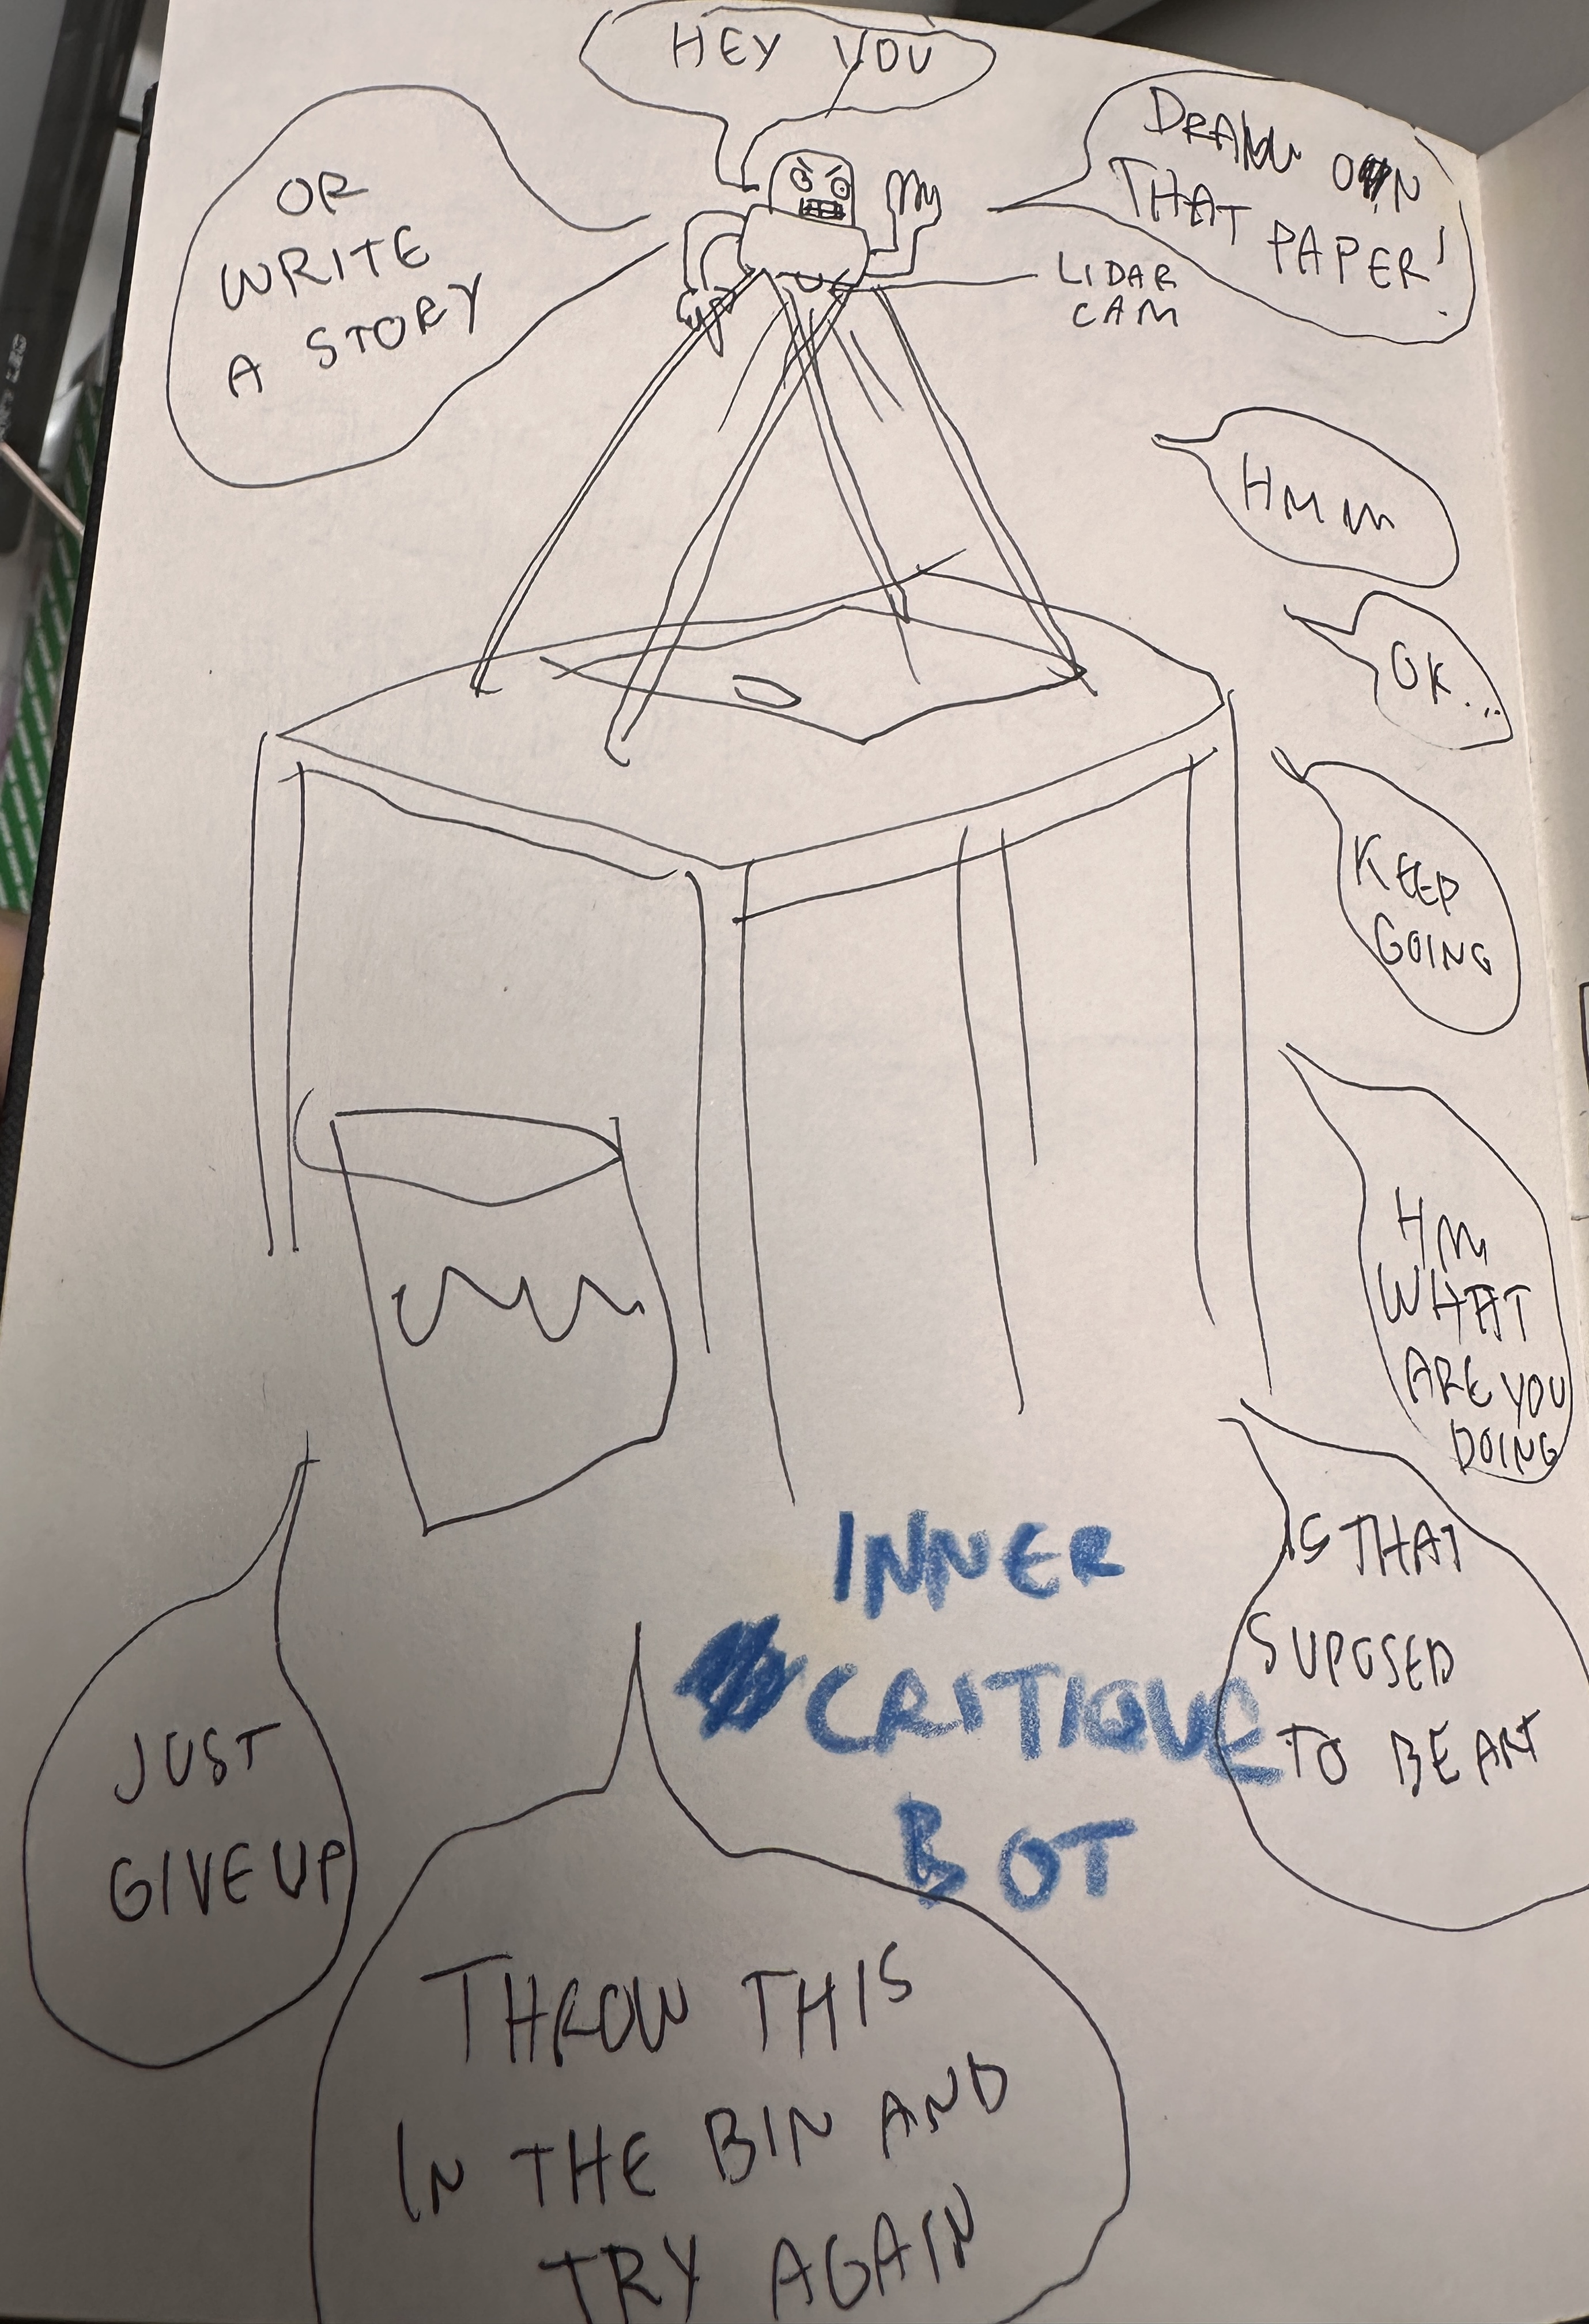 HEY YOU
DRAW ON
THAT
PAPER!
OR
WRITE
A STORY
LIDAR
CAM
HMM
OK...
KEEP
GOING
HM
WHAT
ARE YOU
DOING
IS THAT
SUPOSED
TO BE ART
INNER
CRITIQUE
BOT
JUST
GIVE UP
THROW THIS
IN THE BIN AND
TRY AGAIN